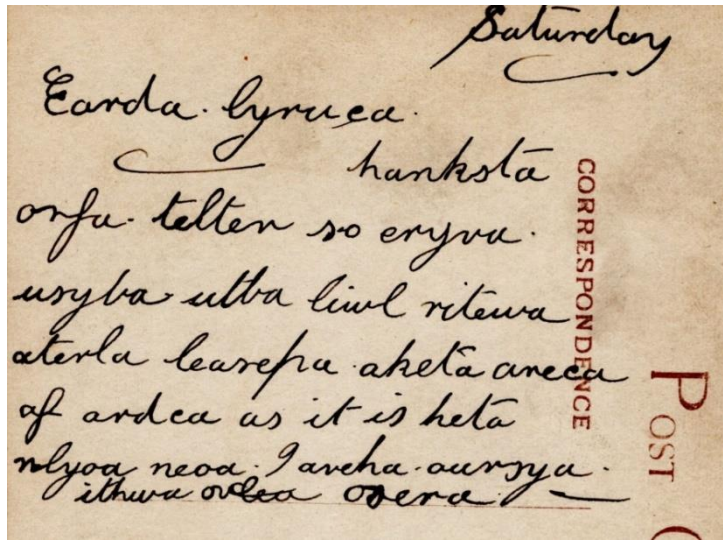 Saturday
Earda. lyruca.
hankstā
orfa. telter so eryva.
usyba utba liwl ritewa
aterla leasepa. aketā areca
of ardca as it is hetā
nlyoa neoa. I aveha. oursya.
ithwa ovlea osera
CORRESPONDENCE
POST